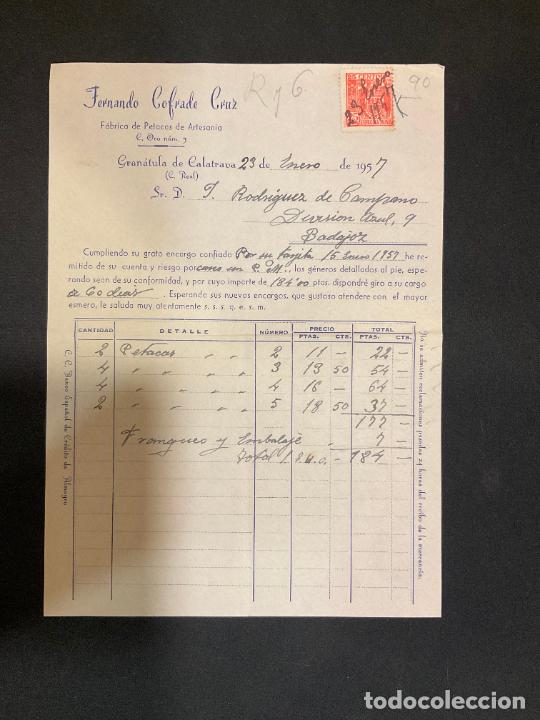 R y G.
90
25 CENTIMOS
23 Enero
1957
Fernando Cofrade Cruz
Fábrica de Petacas de Artesanía
C. Oro núm. 3
Granátula de Calatrava 23 de Enero de 1957
(C. Real)
Sr. D. J. Rodríguez de Campano
Division Azul, 9
Badajoz
Cumpliendo su grato encargo confiado Por su tarjeta 15 Enero 1957 he re-
mitido de su cuenta y riesgo por correo los géneros detallados al pie, espe-
rando sean de su conformidad, y por cuyo importe de 184'00 ptas. dispondré giro a su cargo
a 60 dias. Esperando sus nuevos encargos, que gustoso atendere con el mayor
esmero, le saluda muy atentamente s. s. s. q. e. s. m.
CANTIDAD DETALLE NÚMERO PRECIO TOTAL
PTAS. CTS. PTAS. CTS.
2 Petacas " " 2 11 — 22 —
4 " " " 3 13 50 54 —
4 " " " 4 16 — 64 —
2 " " " 5 18 50 37 —
177 —
Franqueo y Embalaje 7 —
Total 184 —
C. C. Banco Español de Crédito de Almagro
No se admiten reclamaciones pasadas 24 horas del recibo de la mercancía.
todocoleccion